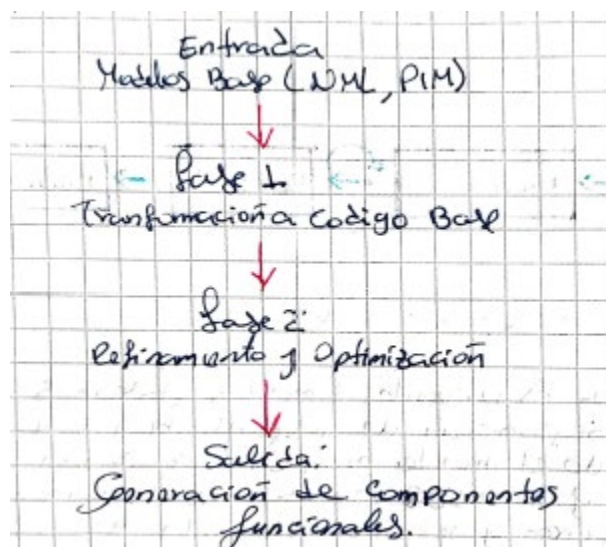 Entrada
Modelos Base (UML, PIM)
Fase 1
Transfomación a Codigo Base
Fase 2:
Refinamiento y Optimización
Salida:
Generación de Componentes
funcionales.